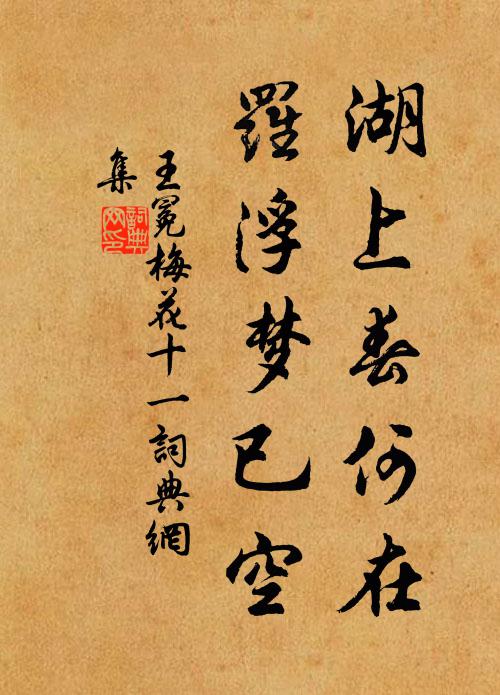 湖上春何在
羅浮梦已空
王冕梅花十一詞典網
集
詞典网印